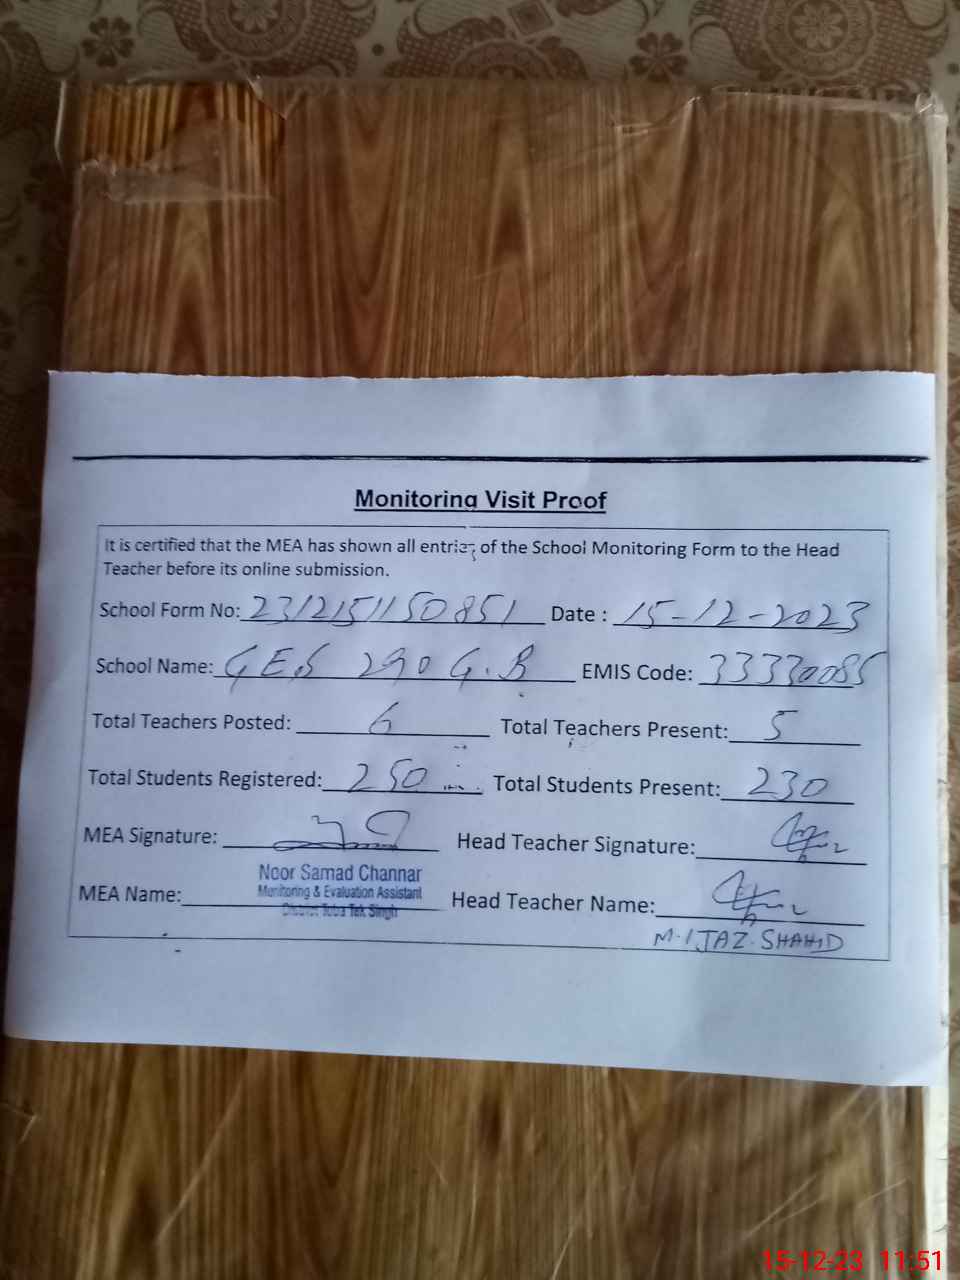 Monitoring Visit Proof
It is certified that the MEA has shown all entries of the School Monitoring Form to the Head
Teacher before its online submission.
School Form No: 2312151150851 Date : 15-12-2023
School Name: GES 290 G.B EMIS Code: 33330085
Total Teachers Posted: 6 Total Teachers Present: 5
Total Students Registered: 250 Total Students Present: 230
MEA Signature: Head Teacher Signature:
Noor Samad Channar
Monitoring & Evaluation Assistant
MEA Name: District Toba Tek Singh Head Teacher Name:
M. IJAZ. SHAHID
15-12-23 11:51